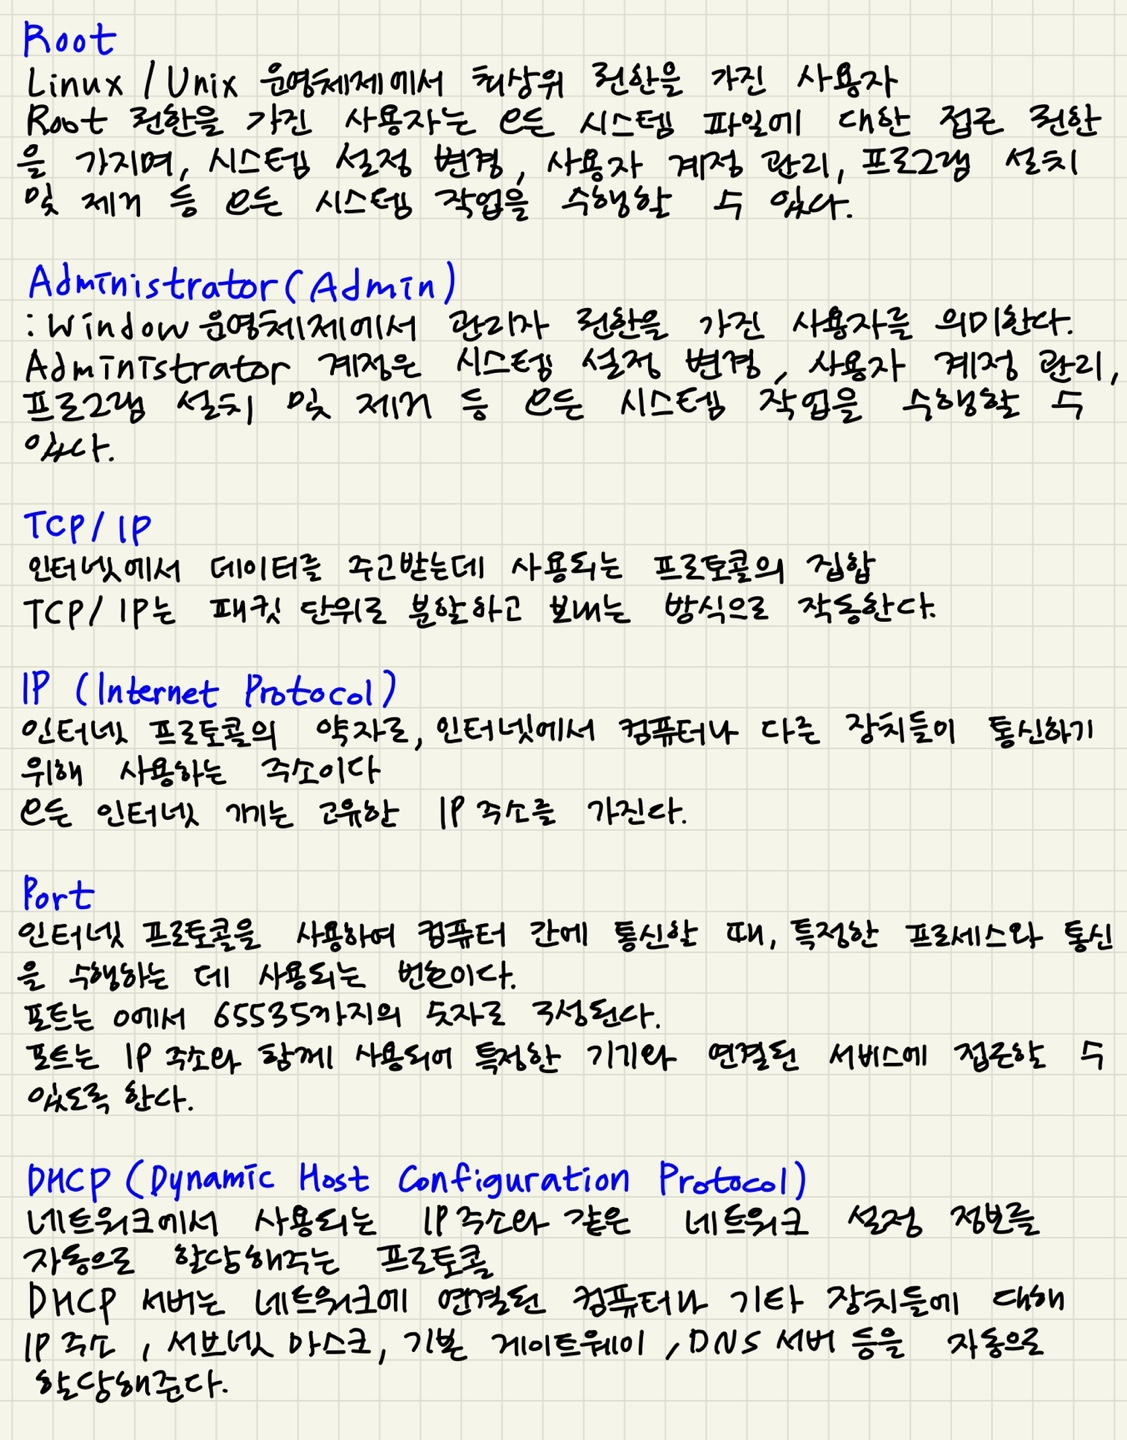 Root
Linux / Unix 운영체제에서 최상위 권한을 가진 사용자
Root 권한을 가진 사용자는 모든 시스템 파일에 대한 접근 권한
을 가지며, 시스템 설정 변경, 사용자 계정 관리, 프로그램 설치
및 제거 등 모든 시스템 작업을 수행할 수 있다.
Administrator(Admin)
: Window 운영체제에서 관리자 권한을 가진 사용자를 의미한다.
Administrator 계정은 시스템 설정 변경, 사용자 계정 관리,
프로그램 설치 및 제거 등 모든 시스템 작업을 수행할 수
있다.
TCP/IP
인터넷에서 데이터를 주고받는데 사용되는 프로토콜의 집합
TCP/IP는 패킷 단위로 분할하고 보내는 방식으로 작동한다.
IP (Internet Protocol)
인터넷 프로토콜의 약자로, 인터넷에서 컴퓨터나 다른 장치들이 통신하기
위해 사용하는 주소이다
모든 인터넷 기기는 고유한 IP 주소를 가진다.
Port
인터넷 프로토콜을 사용하여 컴퓨터 간에 통신할 때, 특정한 프로세스와 통신
을 수행하는 데 사용되는 번호이다.
포트는 0에서 65535까지의 숫자로 구성된다.
포트는 IP 주소와 함께 사용되어 특정한 기기와 연결된 서비스에 접근할 수
있도록 한다.
DHCP (Dynamic Host Configuration Protocol)
네트워크에서 사용되는 IP 주소와 같은 네트워크 설정 정보를
자동으로 할당해주는 프로토콜
DHCP 서버는 네트워크에 연결된 컴퓨터나 기타 장치들에 대해
IP 주소, 서브넷 마스크, 기본 게이트웨이, DNS 서버 등을 자동으로
할당해준다.